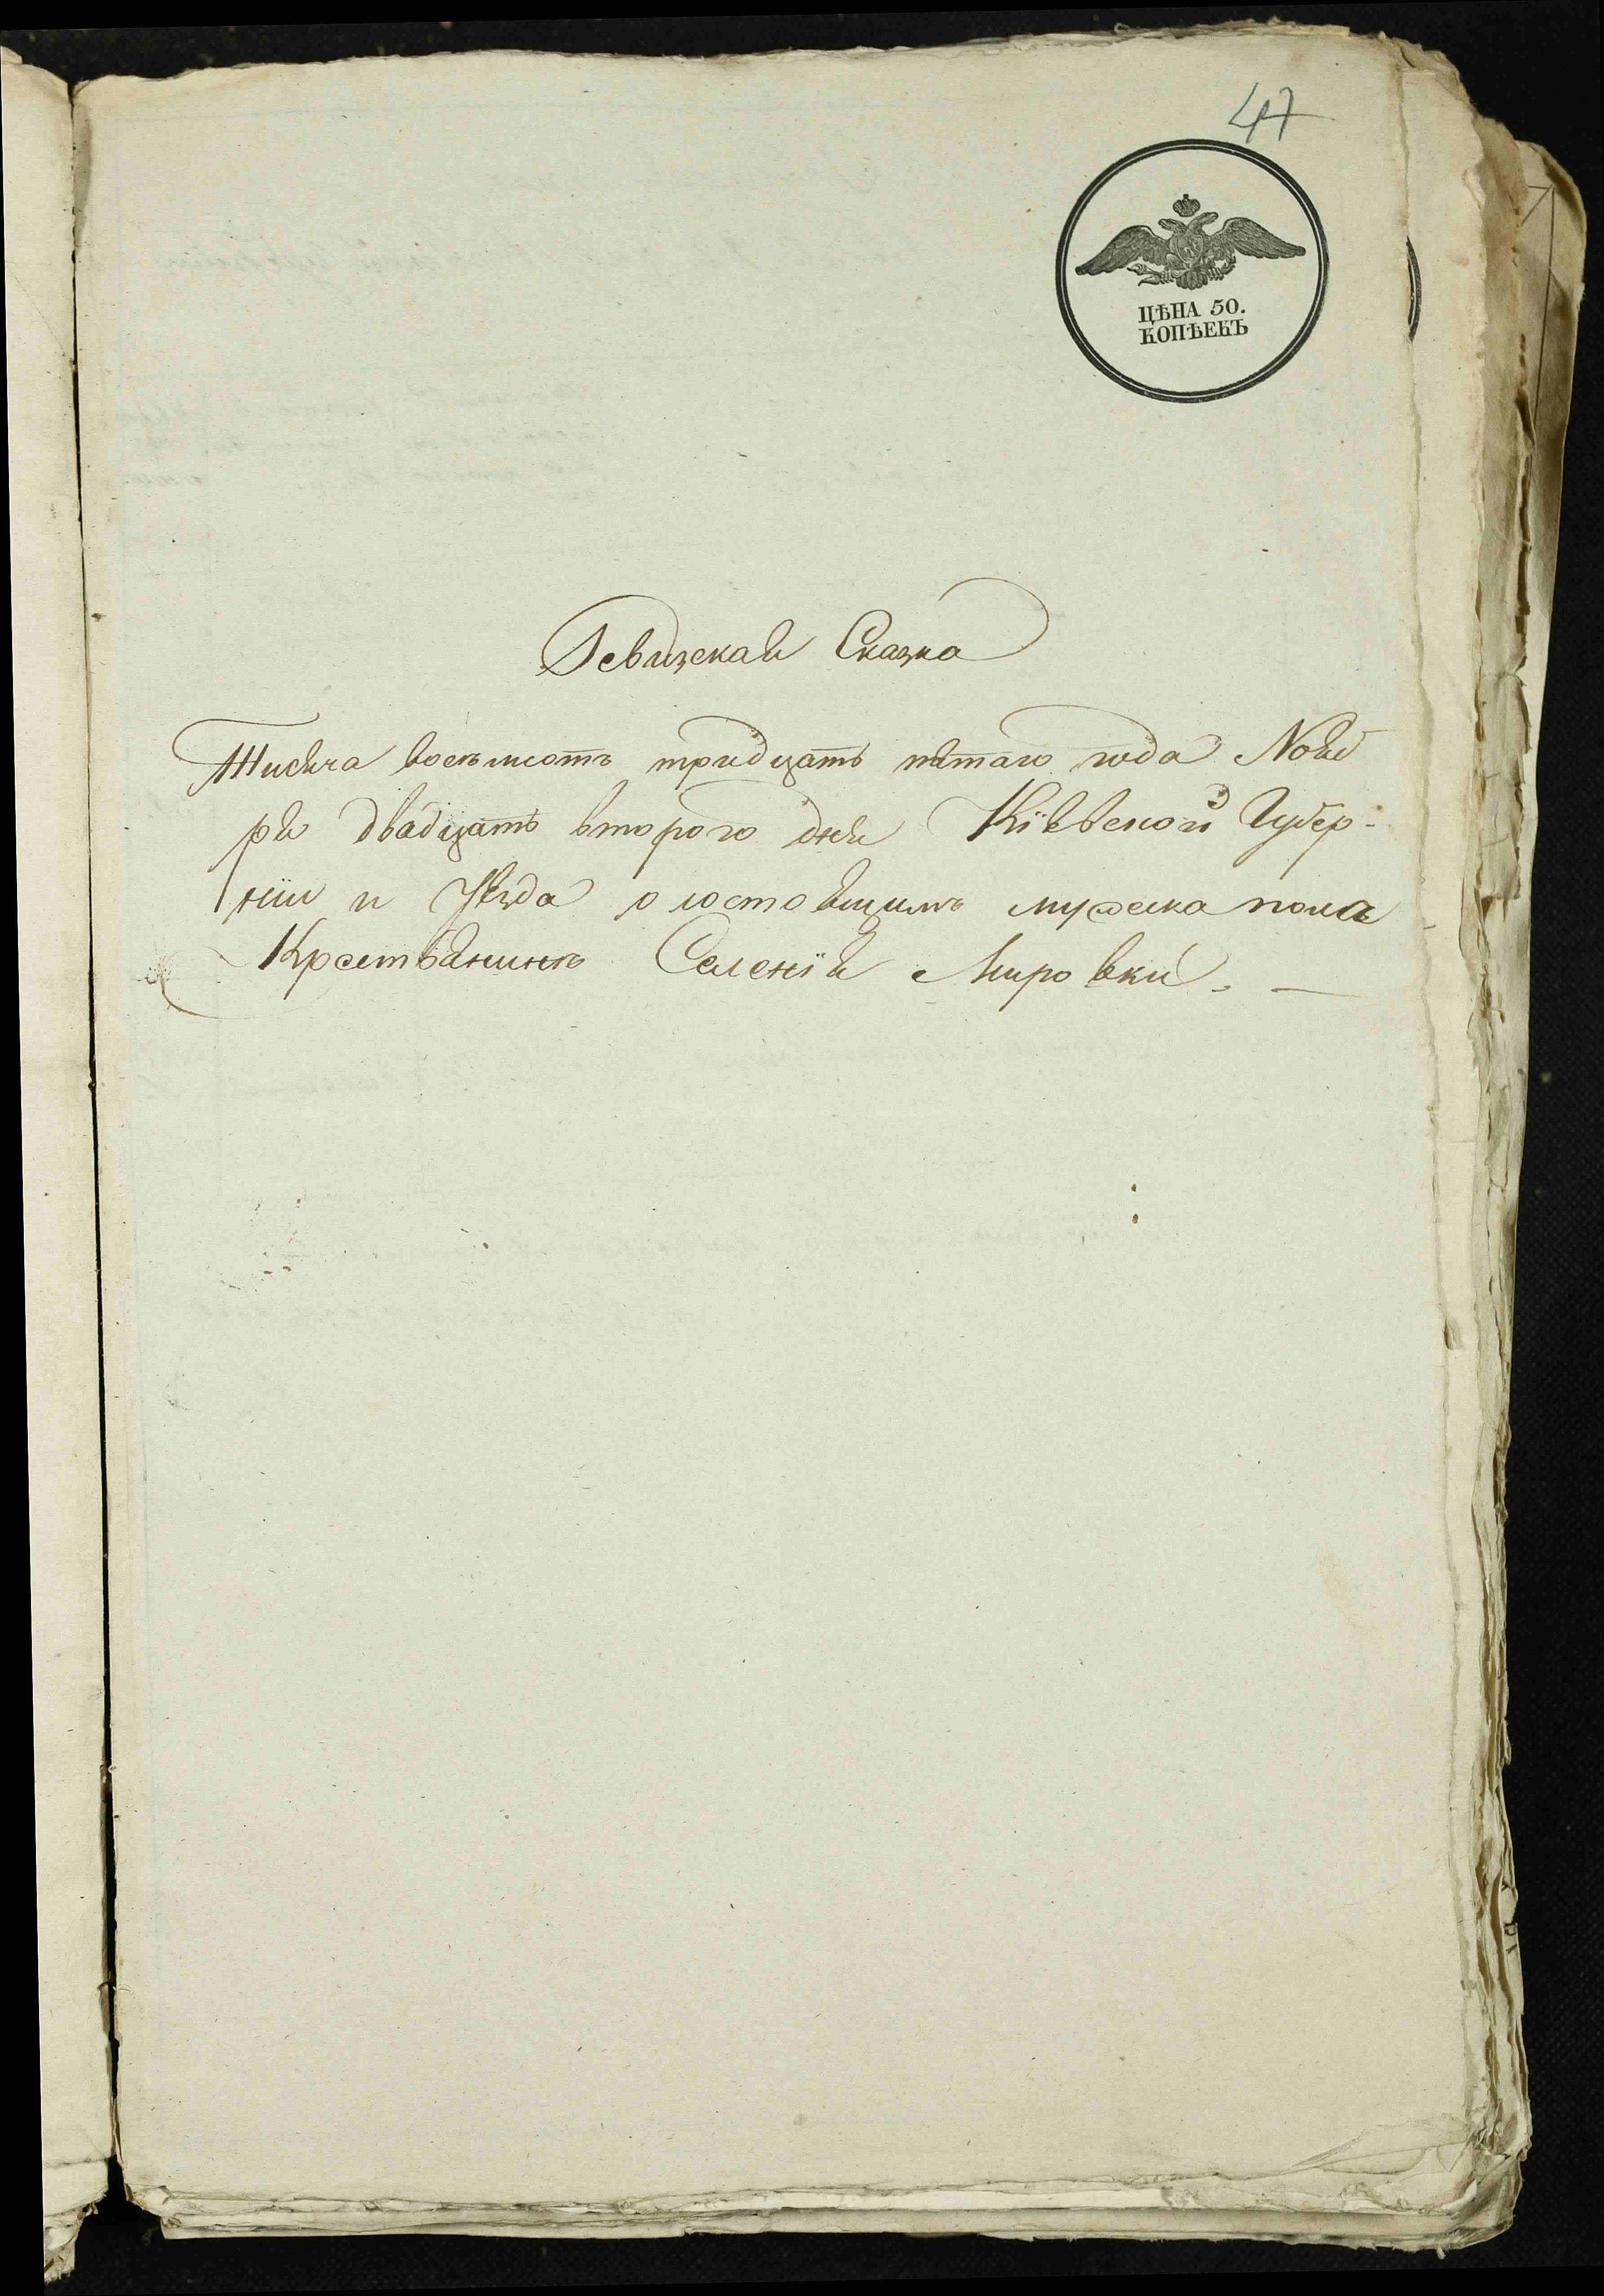 47
ЦѢНА 50.
КОПѢЕКЪ
Ревизская Сказка
Тисяча восемьсотъ тридцать пятаго года Nояб
ря двадцать второго дня Кіевской Губер-
ніи и Уѣзда о состоящимъ мужеска пола
Крестьянинѣ Селенія Мировки.